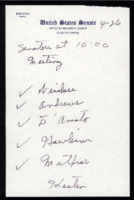 United States Senate
4-26
OFFICE OF MAJORITY LEADER
Senators at 10:00
Meeting
✓ Nickles
✓ Andrews
✓ D'Amato
✓ Hawkins
✓ Mathias